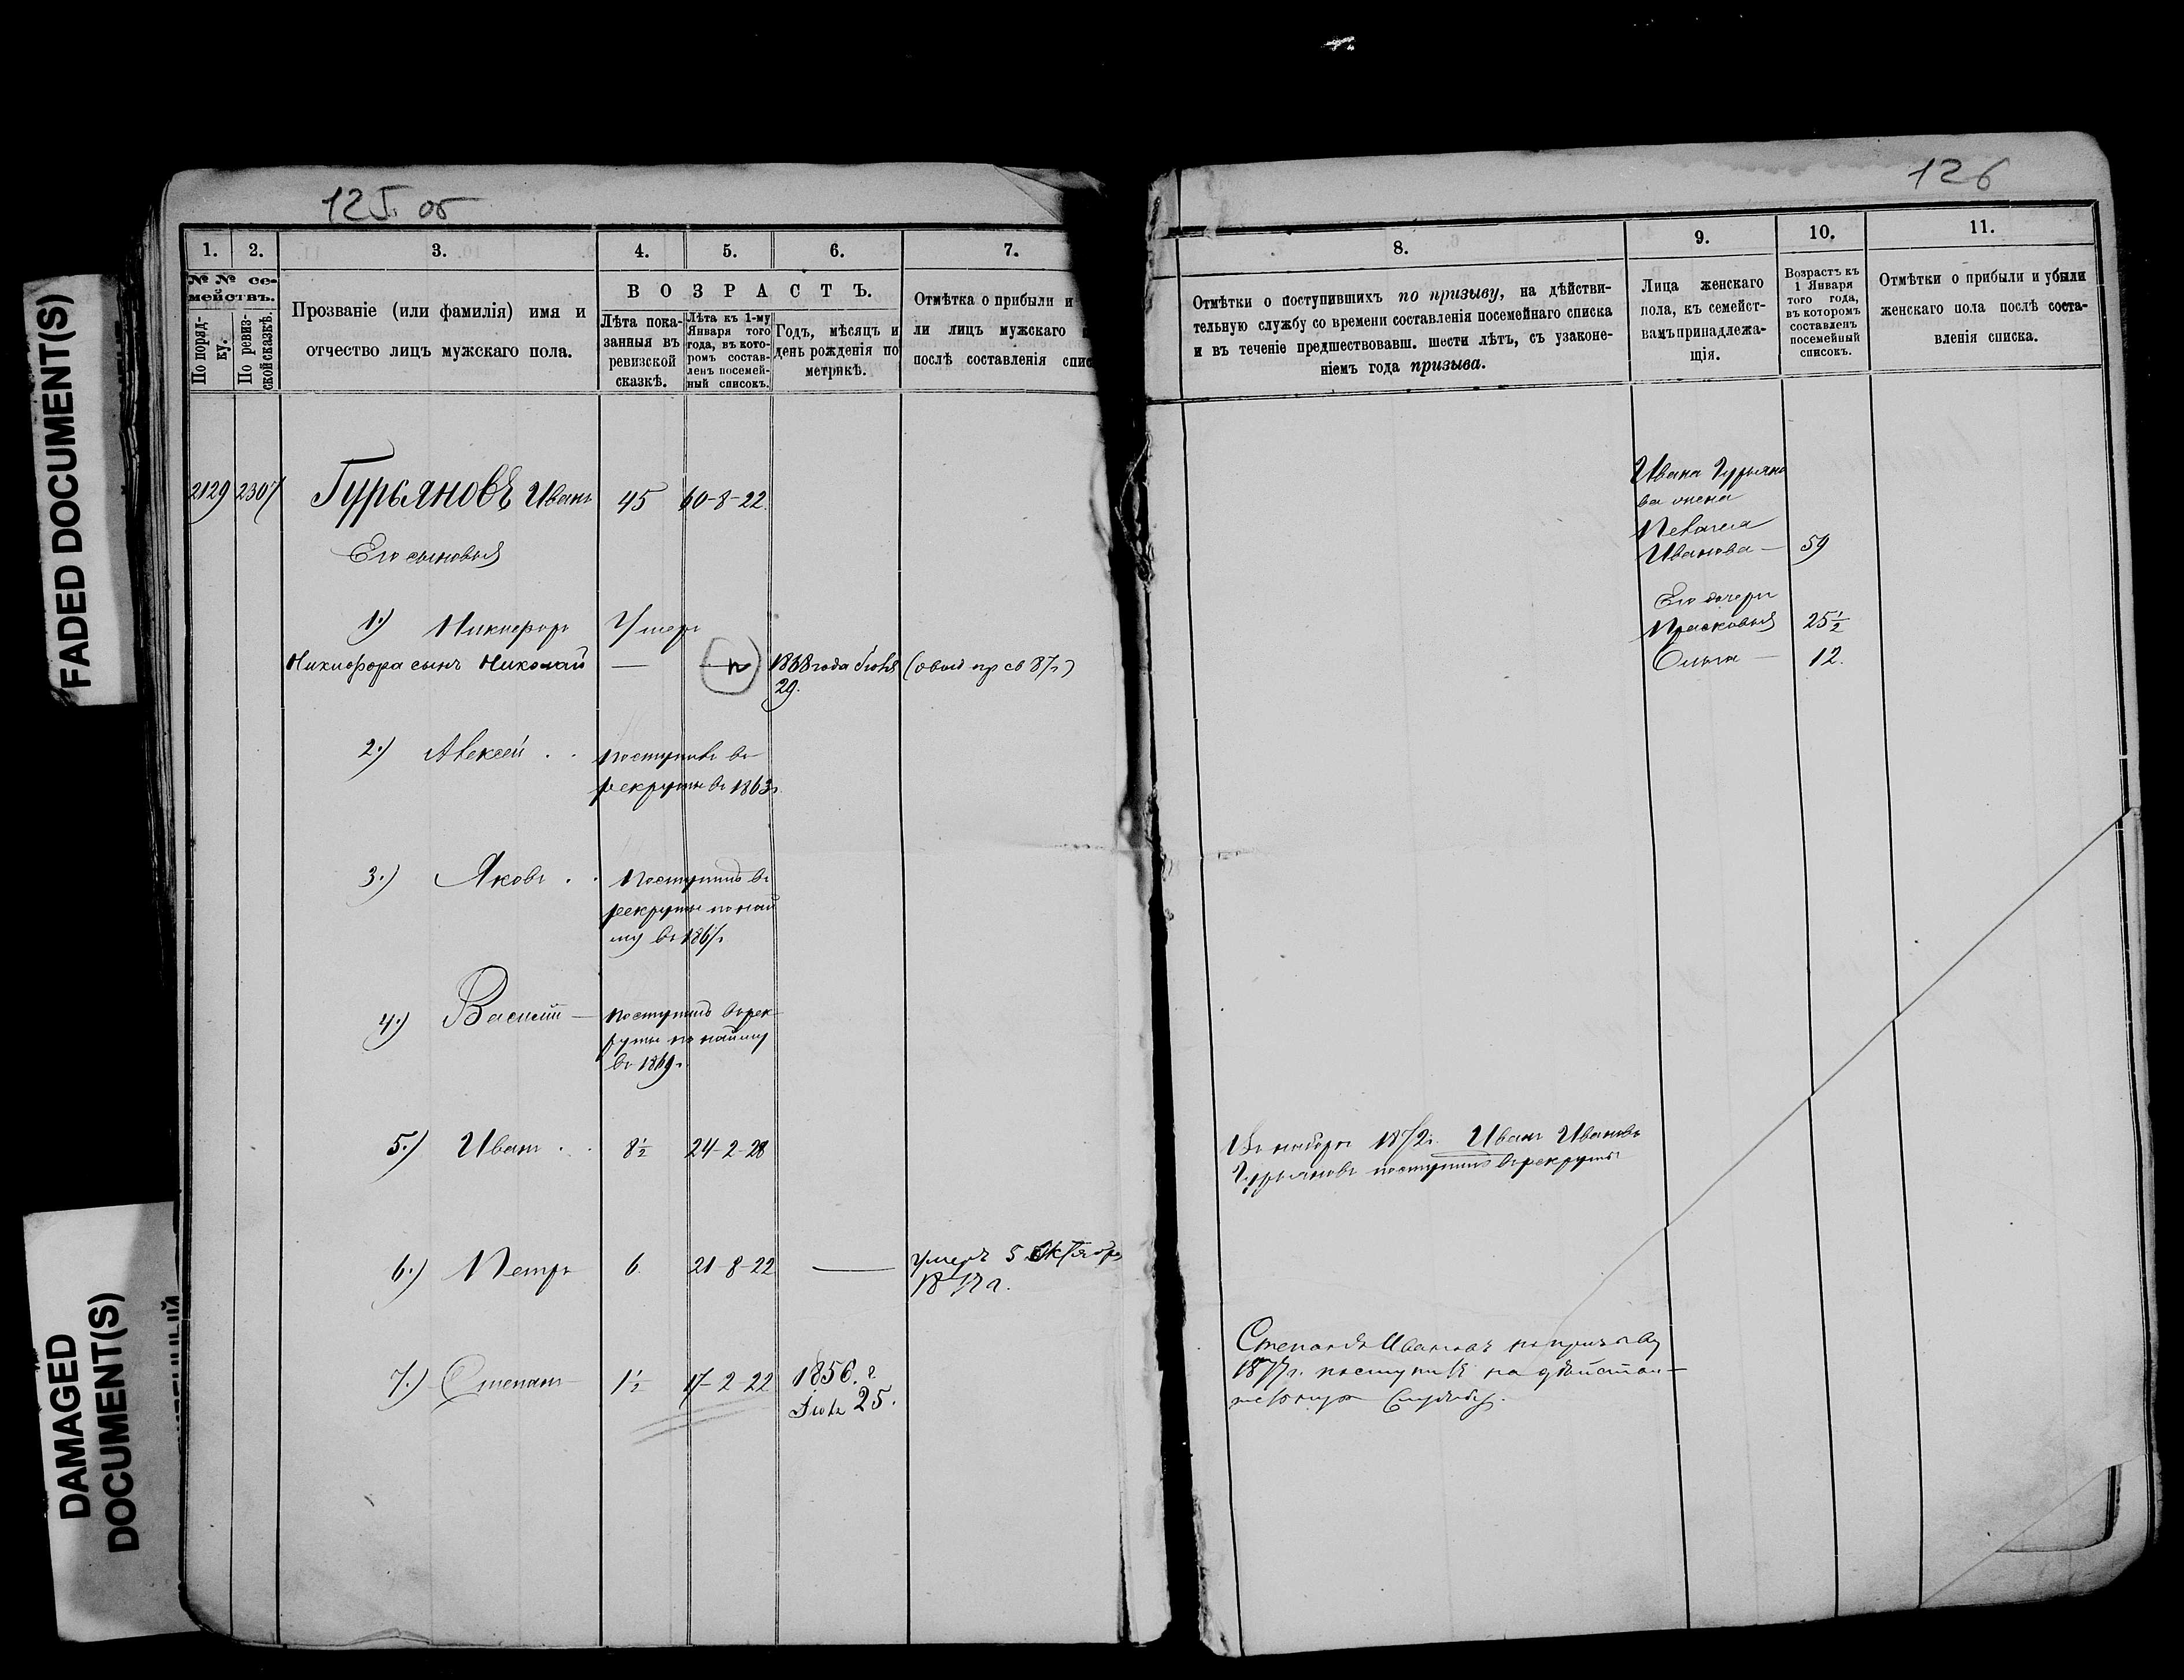 FADED DOCUMENT(S)
DAMAGED
DOCUMENT(S)
125. об
1. 2. 3. 4. 5. 6. 7.
№ № се-
мействъ.
По поряд-
ку.
По ревиз-
ской сказкѣ.
Прозваніе (или фамилія) имя и
отчество лицъ мужскаго пола.
ВОЗРАСТЪ.
Лѣта пока-
занныя въ
ревизской
сказкѣ.
Лѣта къ 1-му
Января того
года, въ кото-
ромъ состав-
ленъ посемей-
ный списокъ.
Годъ, мѣсяцъ и
день рожденія по
метрикѣ.
Отмѣтка о прибыли и
ли лицъ мужскаго
послѣ составленія спис
2129 2307 Гурьяновъ Иванъ 45 60-8-22
Его сыновья
1.) Никифоръ Умеръ
Никифора сынъ Николай — 1868 года Іюня
29.
2.) Алексѣй . . Поступилъ въ
рекруты въ 1863г.
3.) Яковъ . . Поступилъ въ
рекруты по най
му въ 1867г.
4.) Василій — Поступилъ въ рек-
руты по найму
въ 1869г.
5.) Иванъ . . 8½ 24-2-28
6.) Петръ 6. 21-8-22 — Умеръ 5 Октября
7.) Степанъ 1½ 17-2-22 1856. г.
25.
126
8. 9. 10. 11.
Отмѣтки о поступившихъ по призыву, на дѣйстви-
тельную службу со времени составленія посемейнаго списка
и въ теченіе предшествовавш. шести лѣтъ, съ узаконе-
ніемъ года призыва.
Лица женскаго
пола, къ семейст-
вамъ принадлежа-
щія.
Возрастъ къ
1 Января
того года,
въ которомъ
составленъ
посемейный
списокъ.
Отмѣтки о прибыли и убыли
женскаго пола послѣ соста-
вленія списка.
Ивана Гурьяно
ва жена
Пелагея
Иванова — 59
Его дочери
Прасковья 25½
Ольга — 12.
Въ наборъ 1872г. Иванъ Ивановъ
Гурьяновъ поступилъ въ рекруты
Степанъ Ивановъ по призыву
1877г. поступилъ на дѣйстви-
тельную службу.